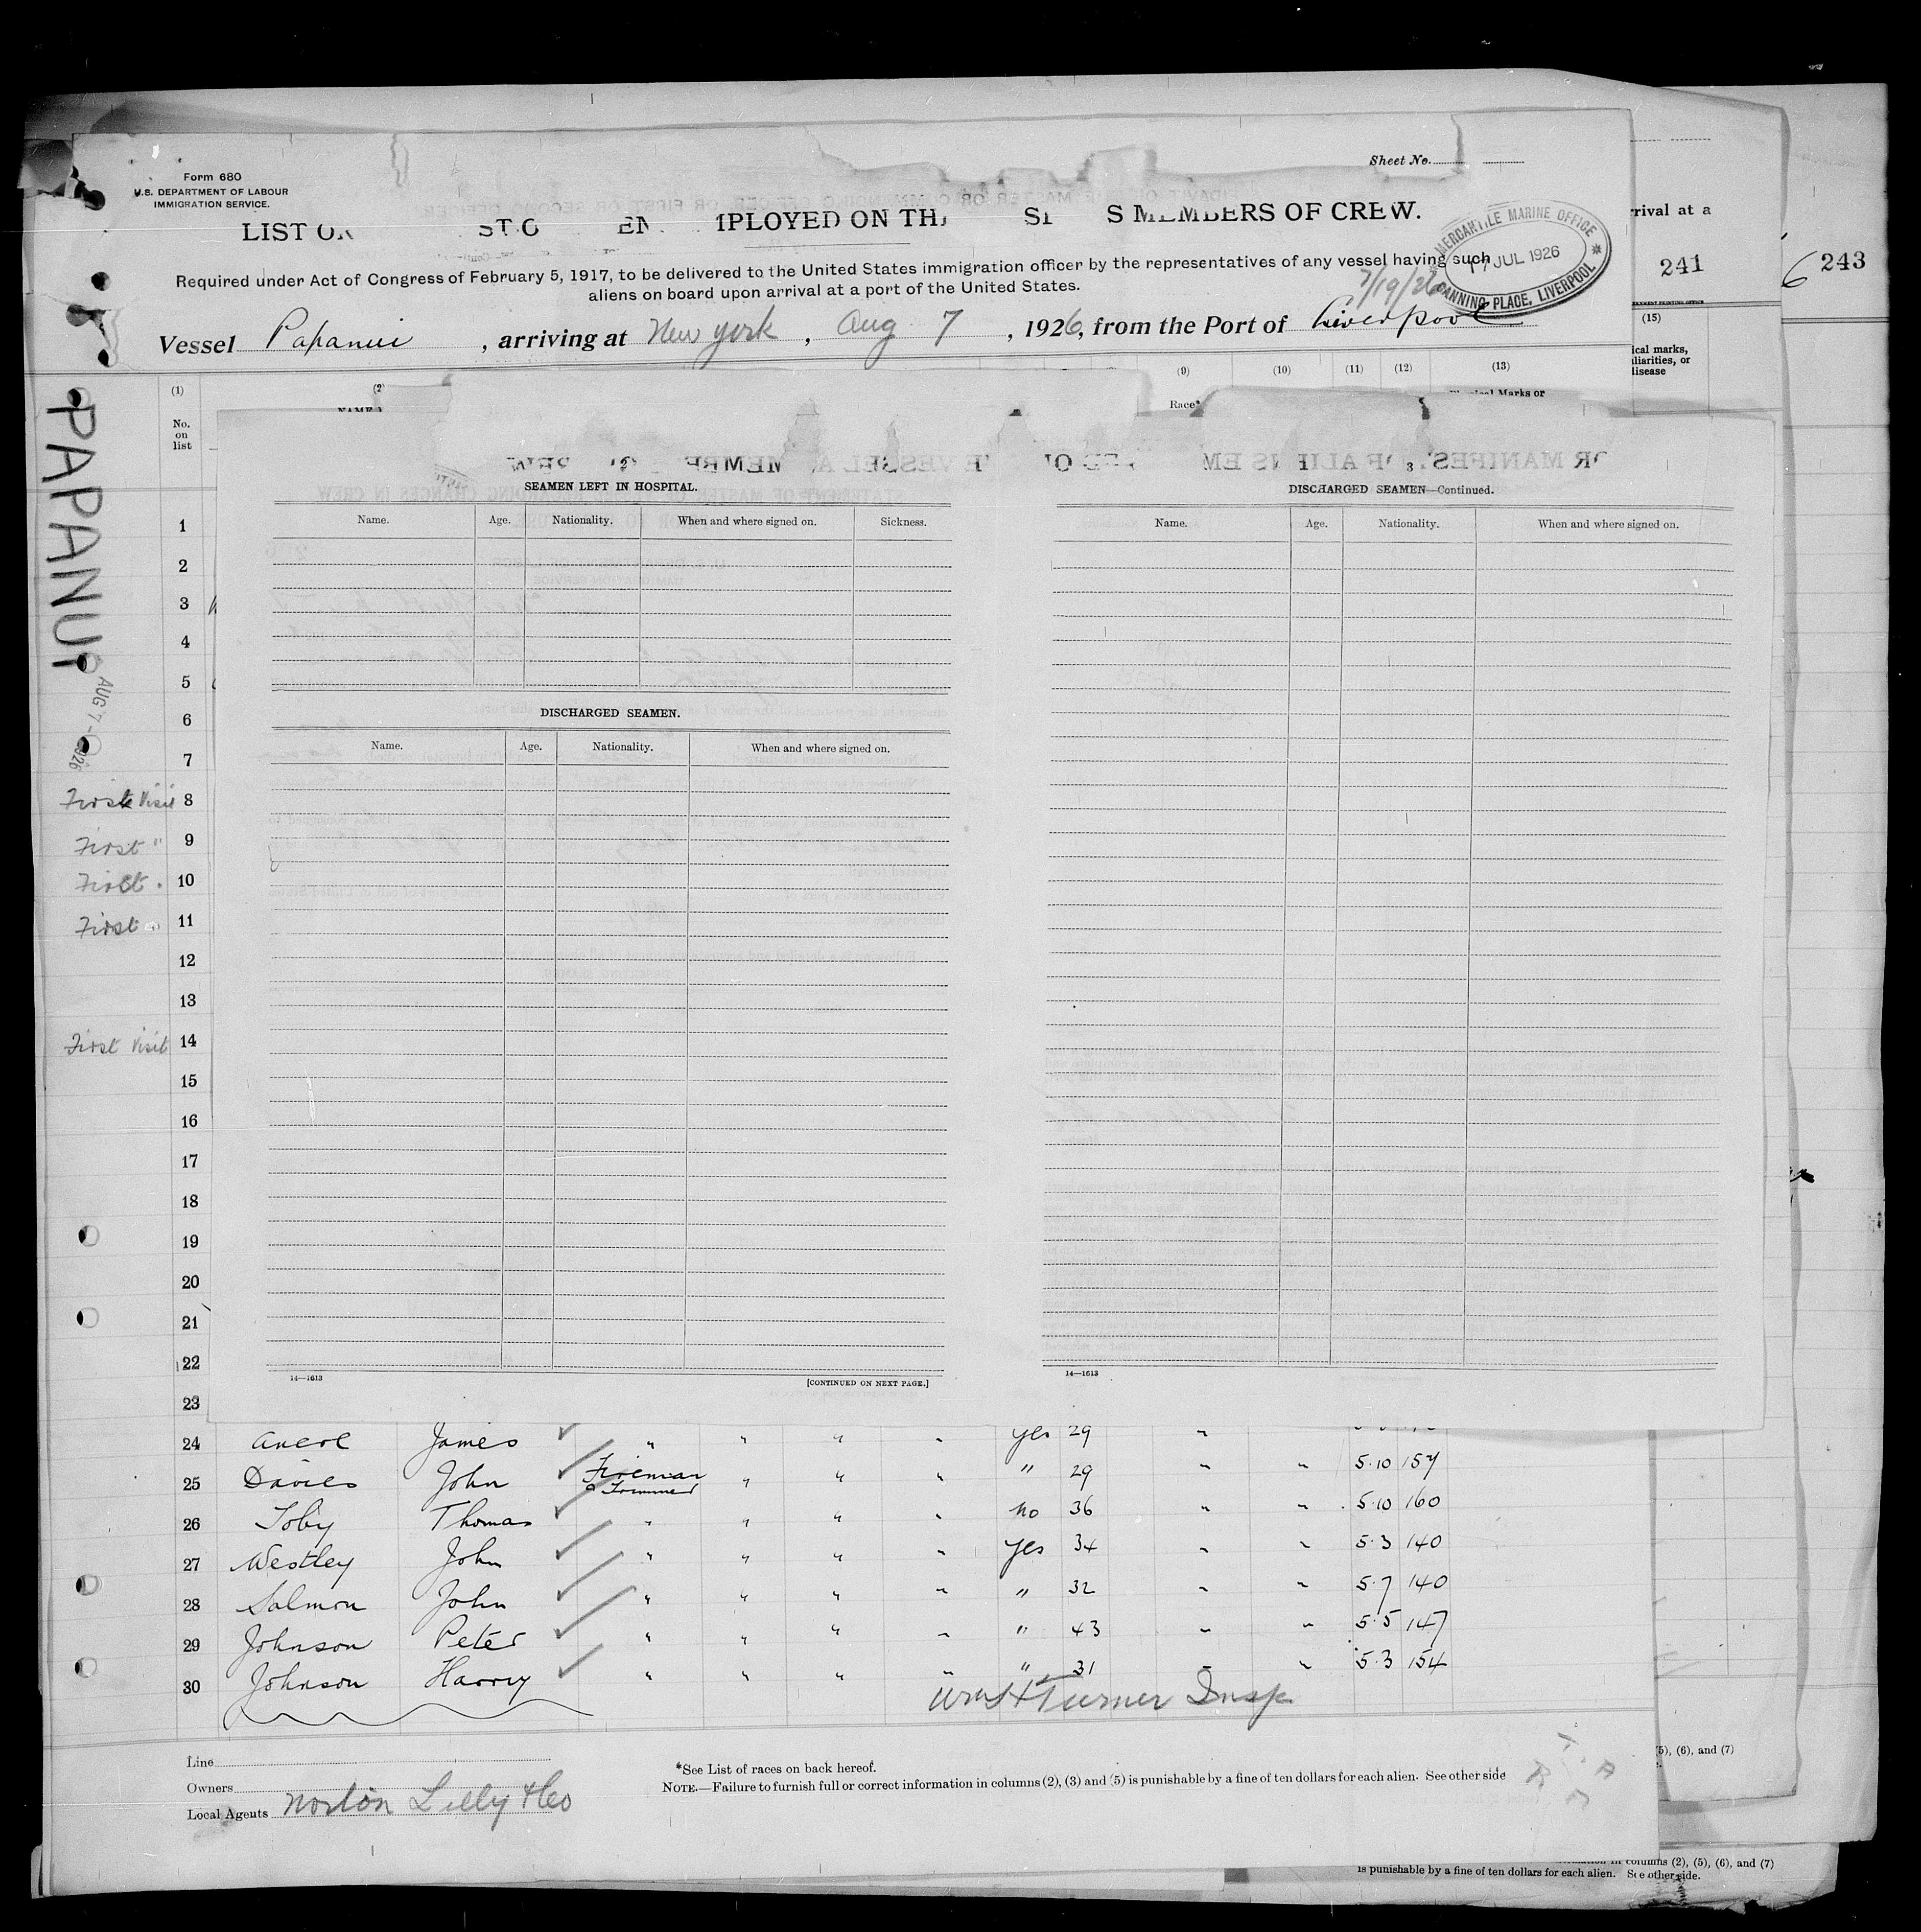 Form 680
U.S. DEPARTMENT OF LABOUR
IMMIGRATION SERVICE.
Sheet No.
LIST OR ST O EN MPLOYED ON TH S MEMBERS OF CREW.
MERCANTILE MARINE OFFICE
17 JUL 1926
CANNING PLACE, LIVERPOOL
Required under Act of Congress of February 5, 1917, to be delivered to the United States immigration officer by the representatives of any vessel having such
aliens on board upon arrival at a port of the United States.
7/19/26
Vessel Papanui, arriving at New York, Aug 7, 1926, from the Port of Liverpool
rrival at a
241
243
(15)
ical marks,
iliarities, or
disease
(1) (2 (9) (10) (11) (12) (13)
No.
on
list
Race*
Physical Marks or
PAPANUI
AUG 7 - 1926
SEAMEN LEFT IN HOSPITAL.
Name. Age. Nationality. When and where signed on. Sickness.
DISCHARGED SEAMEN.
Name. Age. Nationality. When and where signed on.
14—1613
[CONTINUED ON NEXT PAGE.]
3
DISCHARGED SEAMEN—Continued.
Name. Age. Nationality. When and where signed on.
14—1613
1
2
3
4
5
6
7
First Visit 8
First " 9
First 10
First 11
12
13
First Visit 14
15
16
17
18
19
20
21
22
23
24 James " " " " yes 29 "
25 Davies John Fireman & Trimmer " " " " 29 " " 5.10 157
26 Toby Thomas " " " " no 36 " " 5.10 160
27 Westley John " " " " yes 34 " " 5.3 140
28 Salmon John " " " " " 32 " " 5.7 140
29 Johnson Peter " " " " " 43 " " 5.5 147
30 Johnson Harry " " " " " 31 " " 5.3 154
Wm H Turner Insp
Line
Owners
Local Agents Norton Lilly & Co
*See List of races on back hereof.
NOTE.—Failure to furnish full or correct information in columns (2), (3) and (5) is punishable by a fine of ten dollars for each alien. See other side
(5), (6), and (7)
columns (2), (5), (6), and (7)
is punishable by a fine of ten dollars for each alien. See other side.